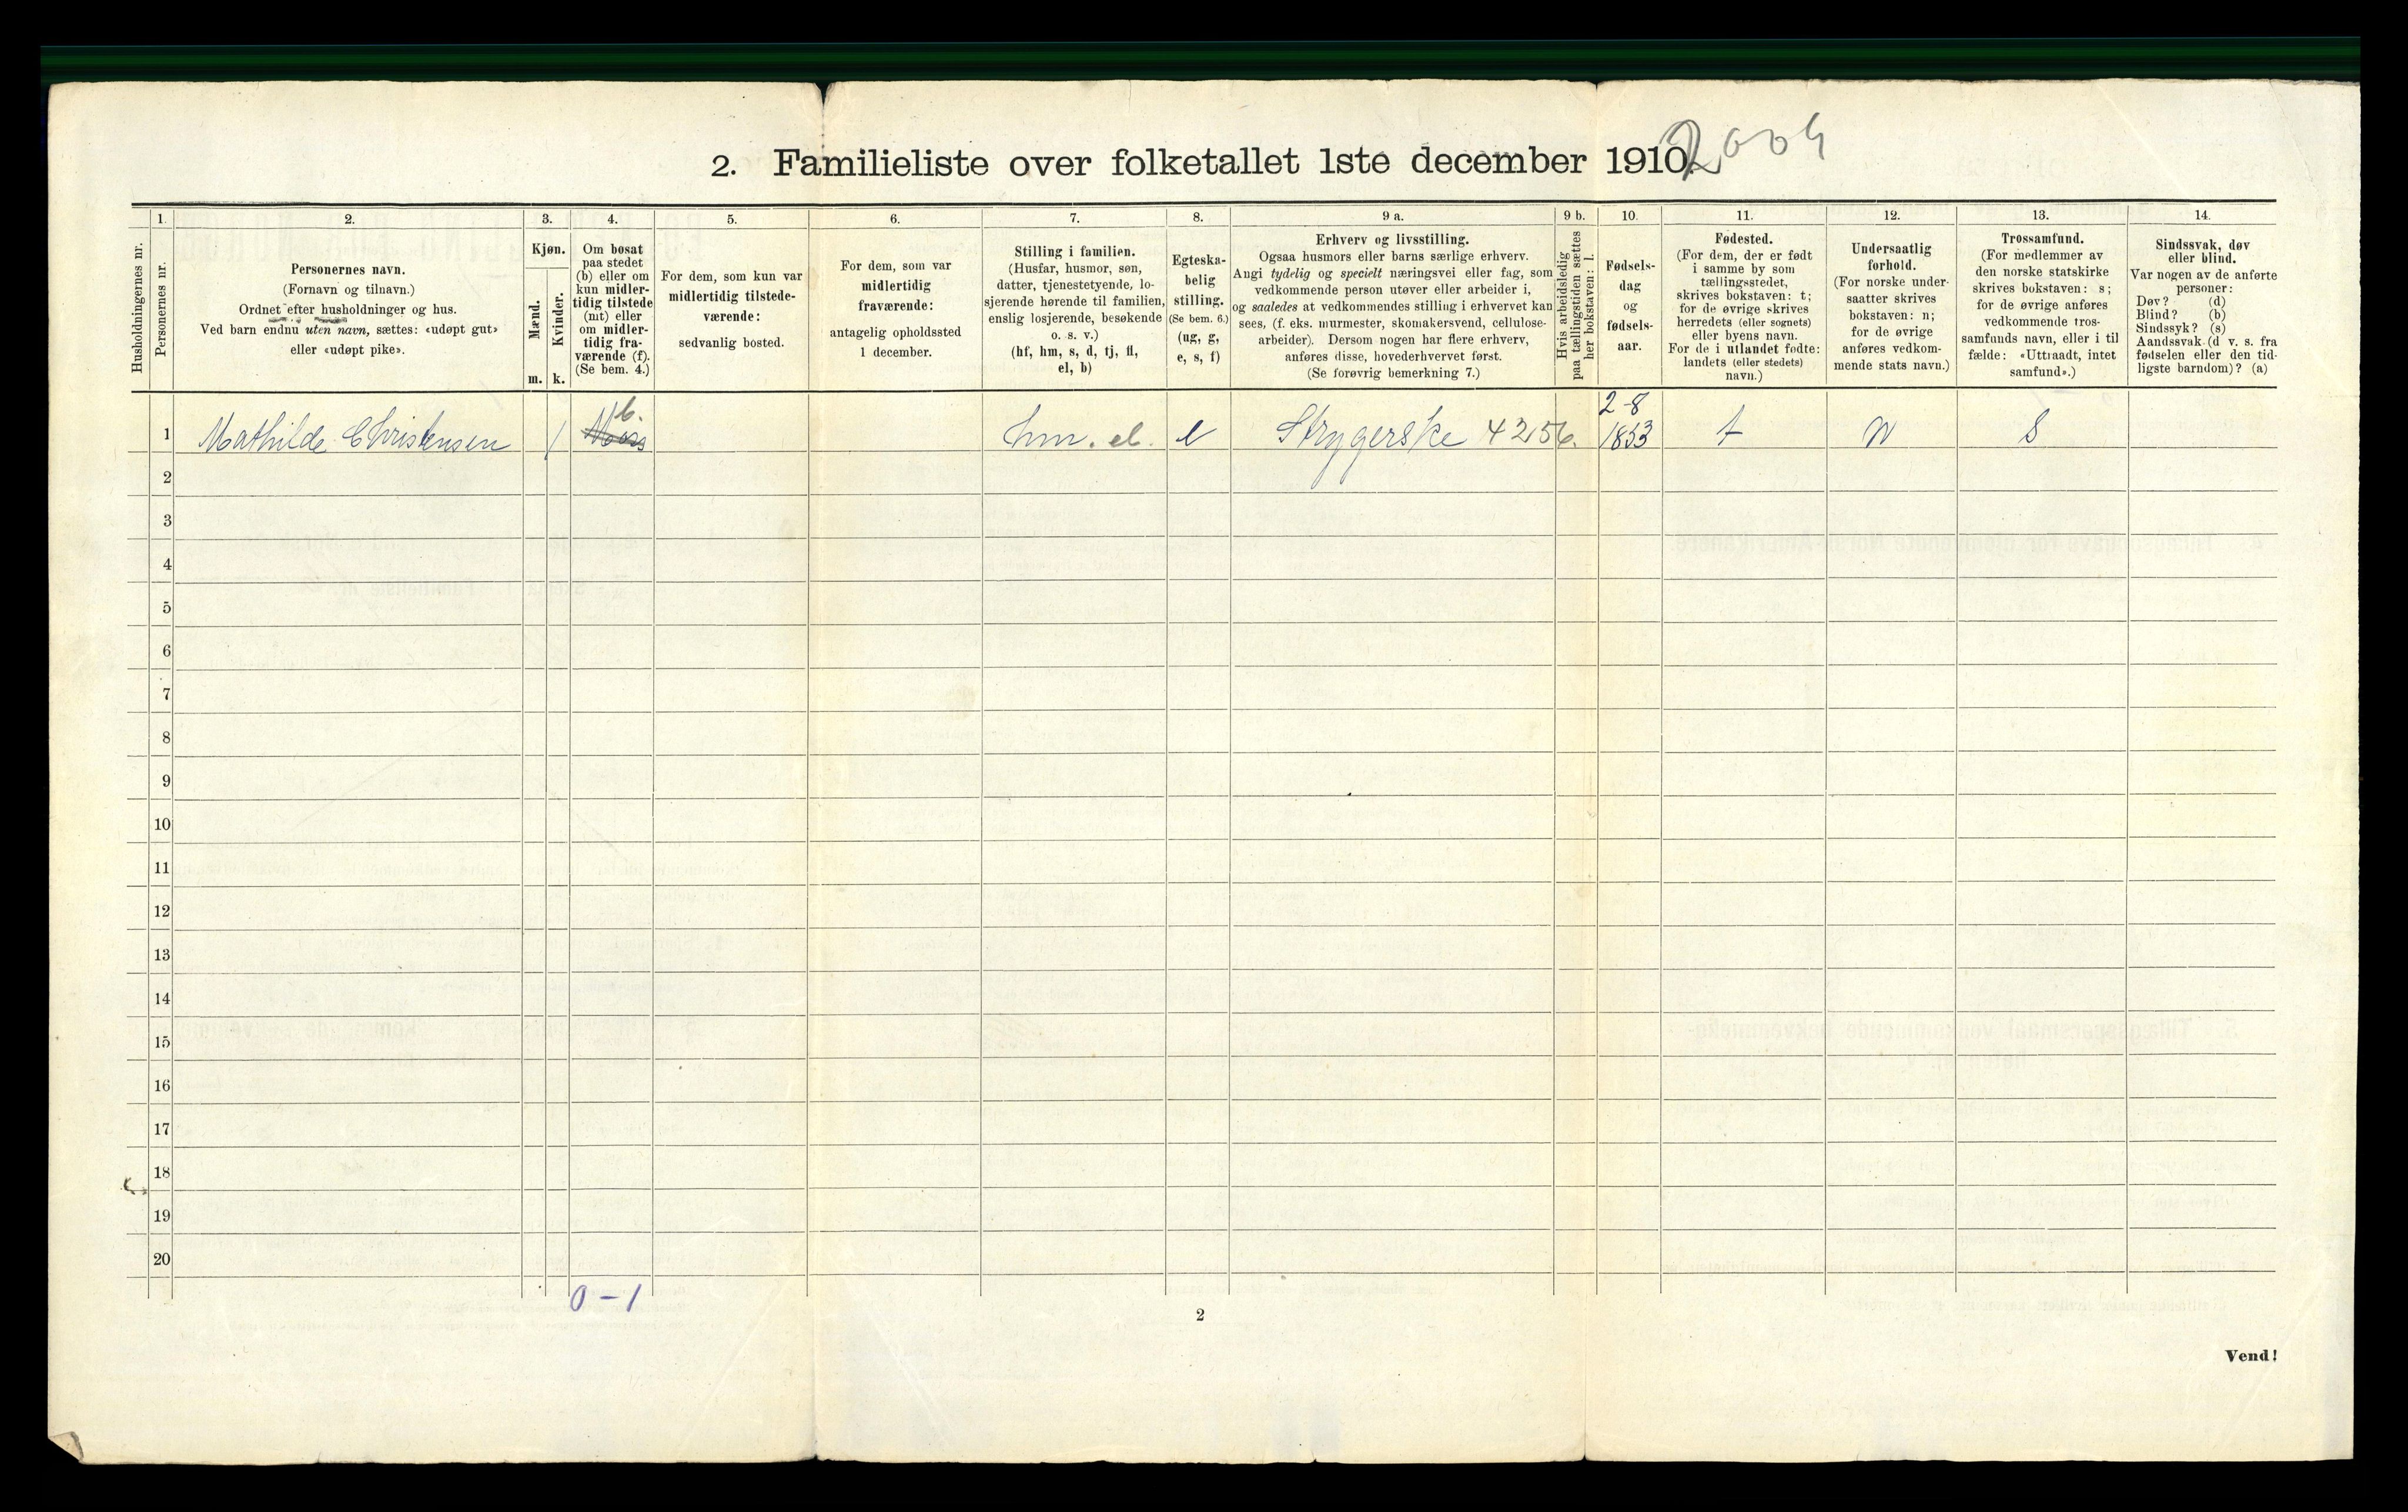 2. Familieliste over folketallet 1ste december 1910.
2009
Husholdningernes nr.
1.
Personernes nr.
2.
Personernes navn.
(Fornavn og tilnavn.)
Ordnet efter husholdninger og hus.
Ved barn endnu uten navn, sættes: «udøpt gut»
eller «udøpt pike».
3.
Kjøn.
Mænd.
m.
Kvinder.
k.
4.
Om bosat
paa stedet
(b) eller om
kun midler-
tidig tilstede
(mt) eller
om midler-
tidig fra-
værende (f).
(Se bem. 4.)
5.
For dem, som kun var
midlertidig tilstede-
værende:
sedvanlig bosted.
6.
For dem, som var
midlertidig
fraværende:
antagelig opholdssted
1 december.
7.
Stilling i familien.
(Husfar, husmor, søn,
datter, tjenestetyende, lo-
sjerende hørende til familien,
enslig losjerende, besøkende
o. s. v.)
(hf, hm, s, d, tj, fl,
el, b)
8.
Egteska-
belig
stilling.
(Se bem. 6.)
(ug, g,
e, s, f)
9 a.
Erhverv og livsstilling.
Ogsaa husmors eller barns særlige erhverv.
Angi tydelig og specielt næringsvei eller fag, som
vedkommende person utøver eller arbeider i,
og saaledes at vedkommendes stilling i erhvervet kan
sees, (f. eks. murmester, skomakersvend, cellulose-
arbeider). Dersom nogen har flere erhverv,
anføres disse, hovederhvervet først.
(Se forøvrig bemerkning 7.)
9 b.
Hvis arbeidsledig
paa tællingstiden sættes
her bokstaven: l.
10.
Fødsels-
dag
og
fødsels-
aar.
11.
Fødested.
(For dem, der er født
i samme by som
tællingsstedet,
skrives bokstaven: t;
for de øvrige skrives
herredets (eller sognets)
eller byens navn.
For de i utlandet fødte:
landets (eller stedets)
navn.)
12.
Undersaatlig
forhold.
(For norske under-
saatter skrives
bokstaven: n;
for de øvrige
anføres vedkom-
mende stats navn.)
13.
Trossamfund.
(For medlemmer av
den norske statskirke
skrives bokstaven: s;
for de øvrige anføres
vedkommende tros-
samfunds navn, eller i til
fælde: «Uttraadt, intet
samfund».)
14.
Sindssvak, døv
eller blind.
Var nogen av de anførte
personer:
Døv? (d)
Blind? (b)
Sindssyk? (s)
Aandssvak (d v. s. fra
fødselen eller den tid-
ligste barndom)? (a)
1 Mathilde Christensen 1 Moss b. hm. el. e Strygerske 42156. 2-8 1853 t N S
2
3
4
5
6
7
8
9
10
11
12
13
14
15
16
17
18
19
20
0 - 1
2
Vend!